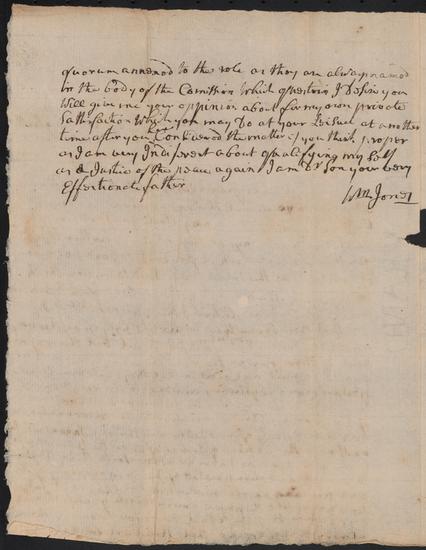 quorum annexed to the role as they are always named
in the body of the Comission which question I Desire you
will give me your oppinion about for my own private
Sattisfaction Which you may Do at your Leisure at another
time after you have Considered the matter if you think proper
as I am very Indiferent about qualifying my Self
as a Justice of the peace again I am Dr Son your very
Effectionate father
Wm Jones